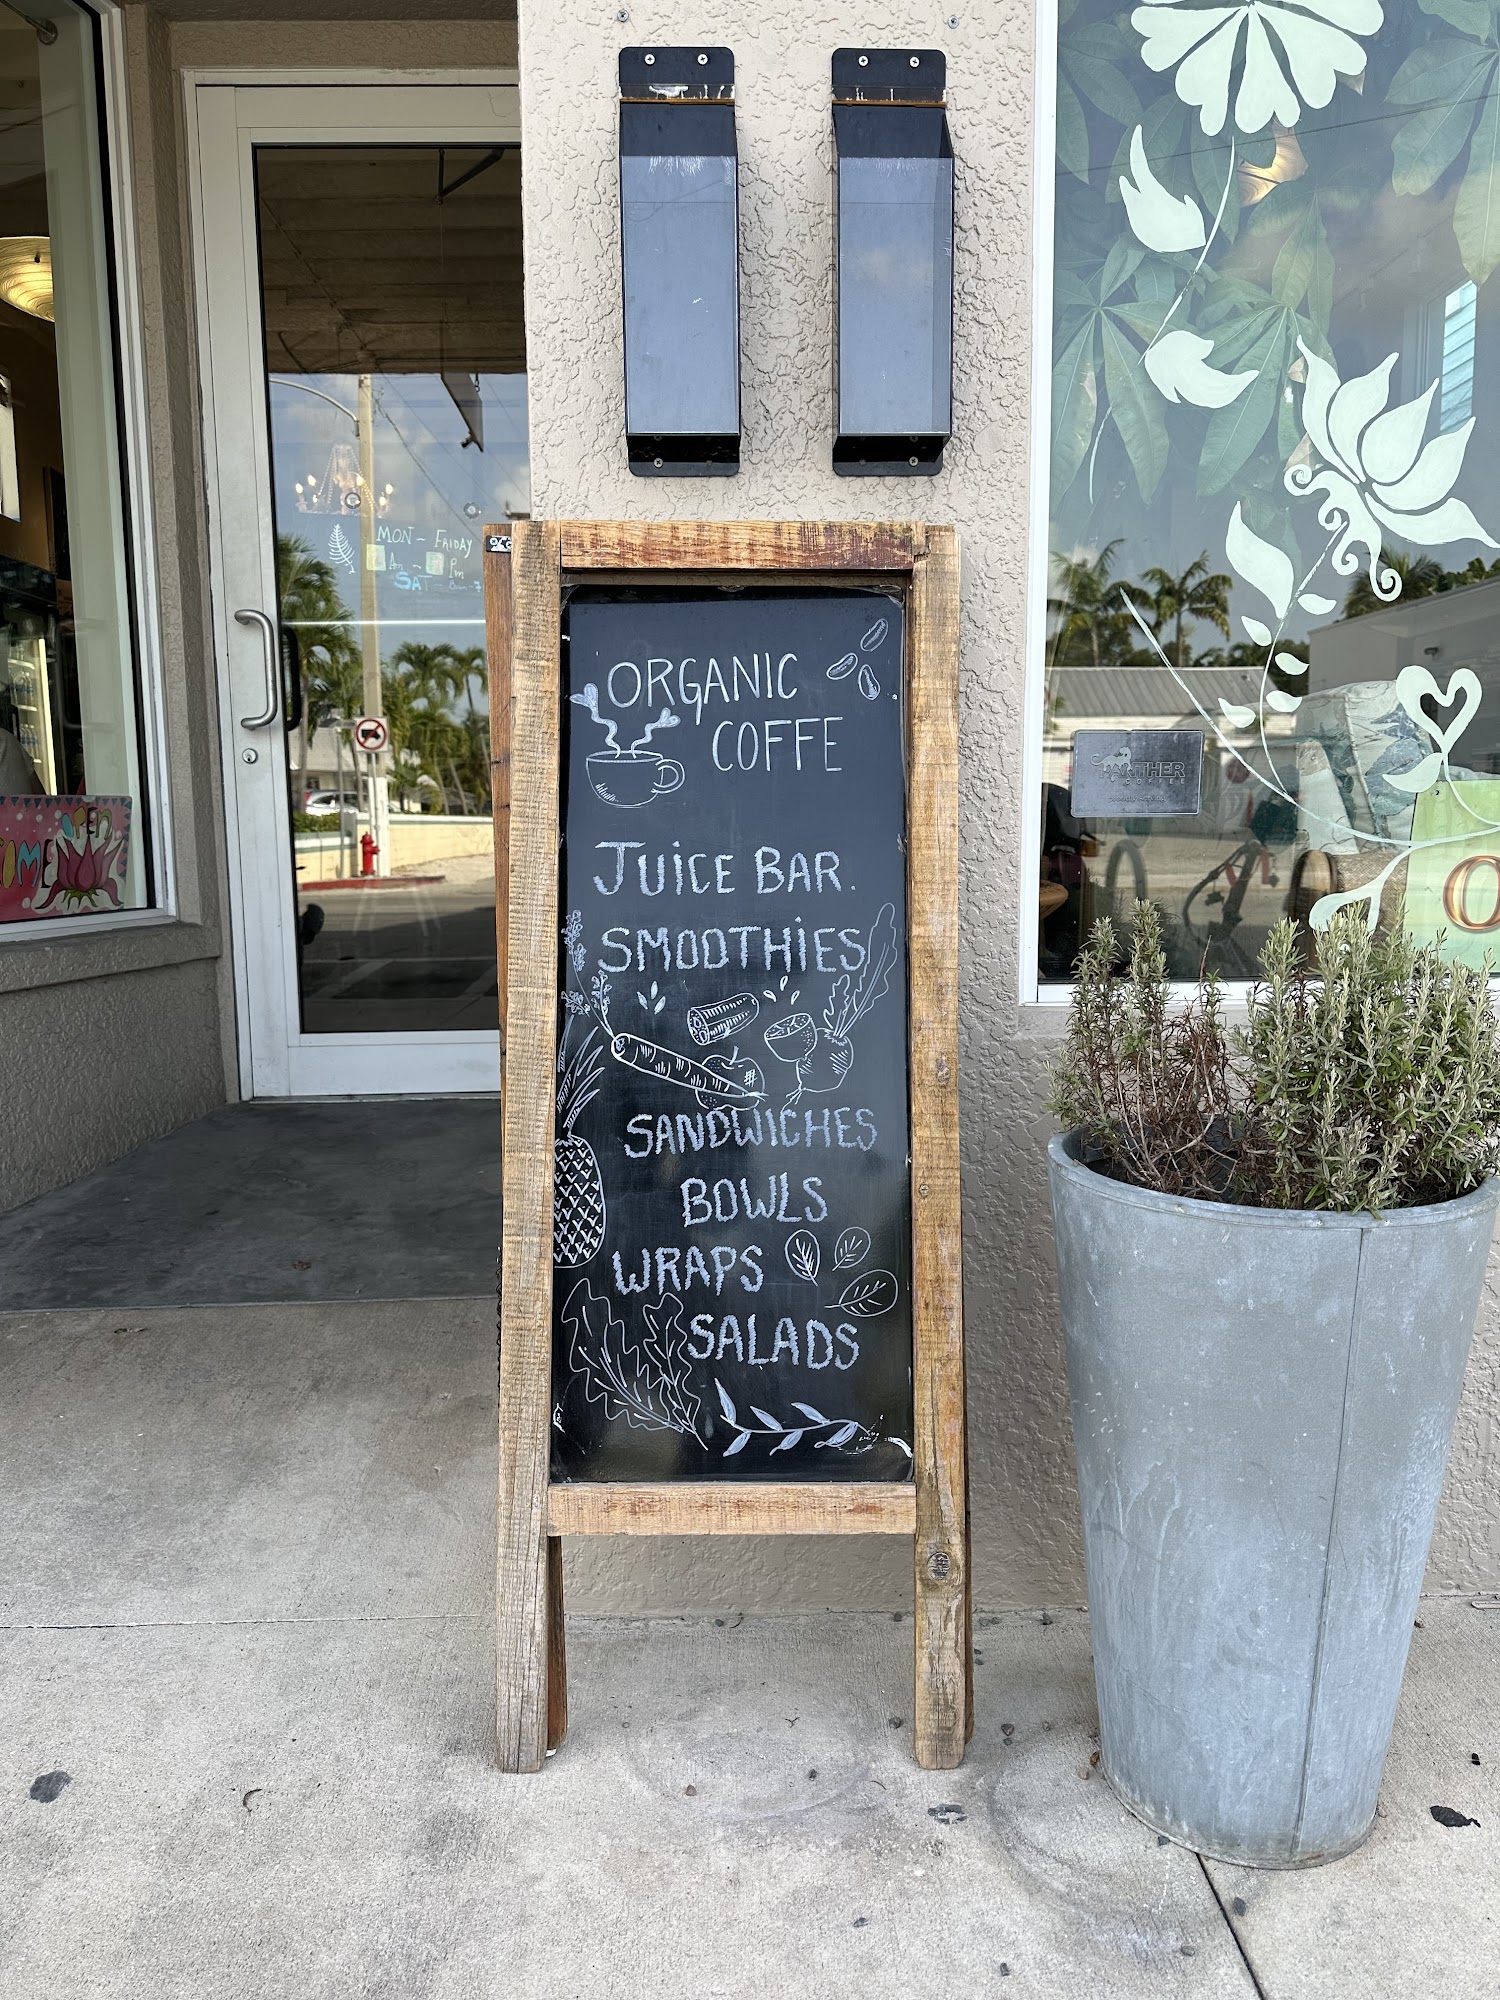 MON ~ FRIDAY
Am ~ Pm
SAT
ORGANIC
COFFE
PANTHER
COFFEE
OPEN
TIME
JUICE BAR.
O
SMOOTHIES
SANDWICHES
BOWLS
WRAPS
SALADS